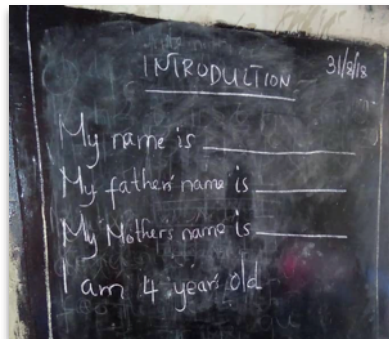 INTRODUCTION 31/8/18
My name is ____________
My father's name is ________
My Mother's name is ________
I am 4 years old